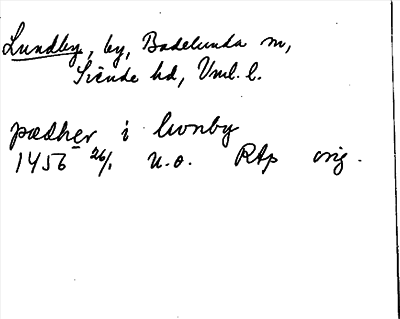 Lundby, by, Badelunda sn,
Siende hd, Vml. l.
pædher i lwnby
1456 26/1 u.o. RAp orig.